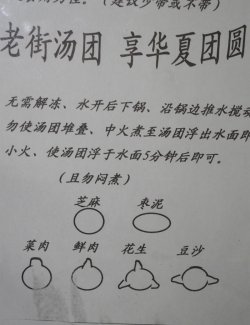 （建议少带或不带）
老街汤团 享华夏团圆
无需解冻、水开后下锅、沿锅边推水搅动
勿使汤团堆叠、中火煮至汤团浮出水面即
小火、使汤团浮于水面5分钟后即可。
（且勿闷煮）
芝麻 枣泥
菜肉 鲜肉 花生 豆沙